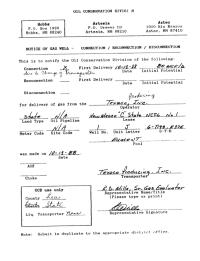 OIL CONSERVATION DIVISION
Hobbs
P.O. Box 1980
Hobbs, NM 88240
Artesia
P.O. Drawer DD
Artesia, NM 88210
Aztec
1000 Rio Brazos
Aztec, NM 87410
NOTICE OF GAS WELL - CONNECTION / RECONNECTION / DISCONNECTION
This is to notify the Oil Conservation Division of the following:
Connection X First Delivery 10-13-88
Date Initial Potential
Reconnection First Delivery
Date Initial Potential
Disconnection
for delivery of gas from the Texaco, Inc.
Operator
State N/A New Mexico "C" State
Land Type Oil Pipeline Lease
N/A N/A 1
Meter Code Site Code Well No. Unit Letter S-T-R
Pool
was made on 10-13-88
Date
AOF
Choke
Texaco Producing, Inc.
Transporter
OCD use only
County
State
Liq. Transporter
Representative Name/Title
(Please type or print)
Representative Signature
Note: Submit in duplicate to the appropriate district office.